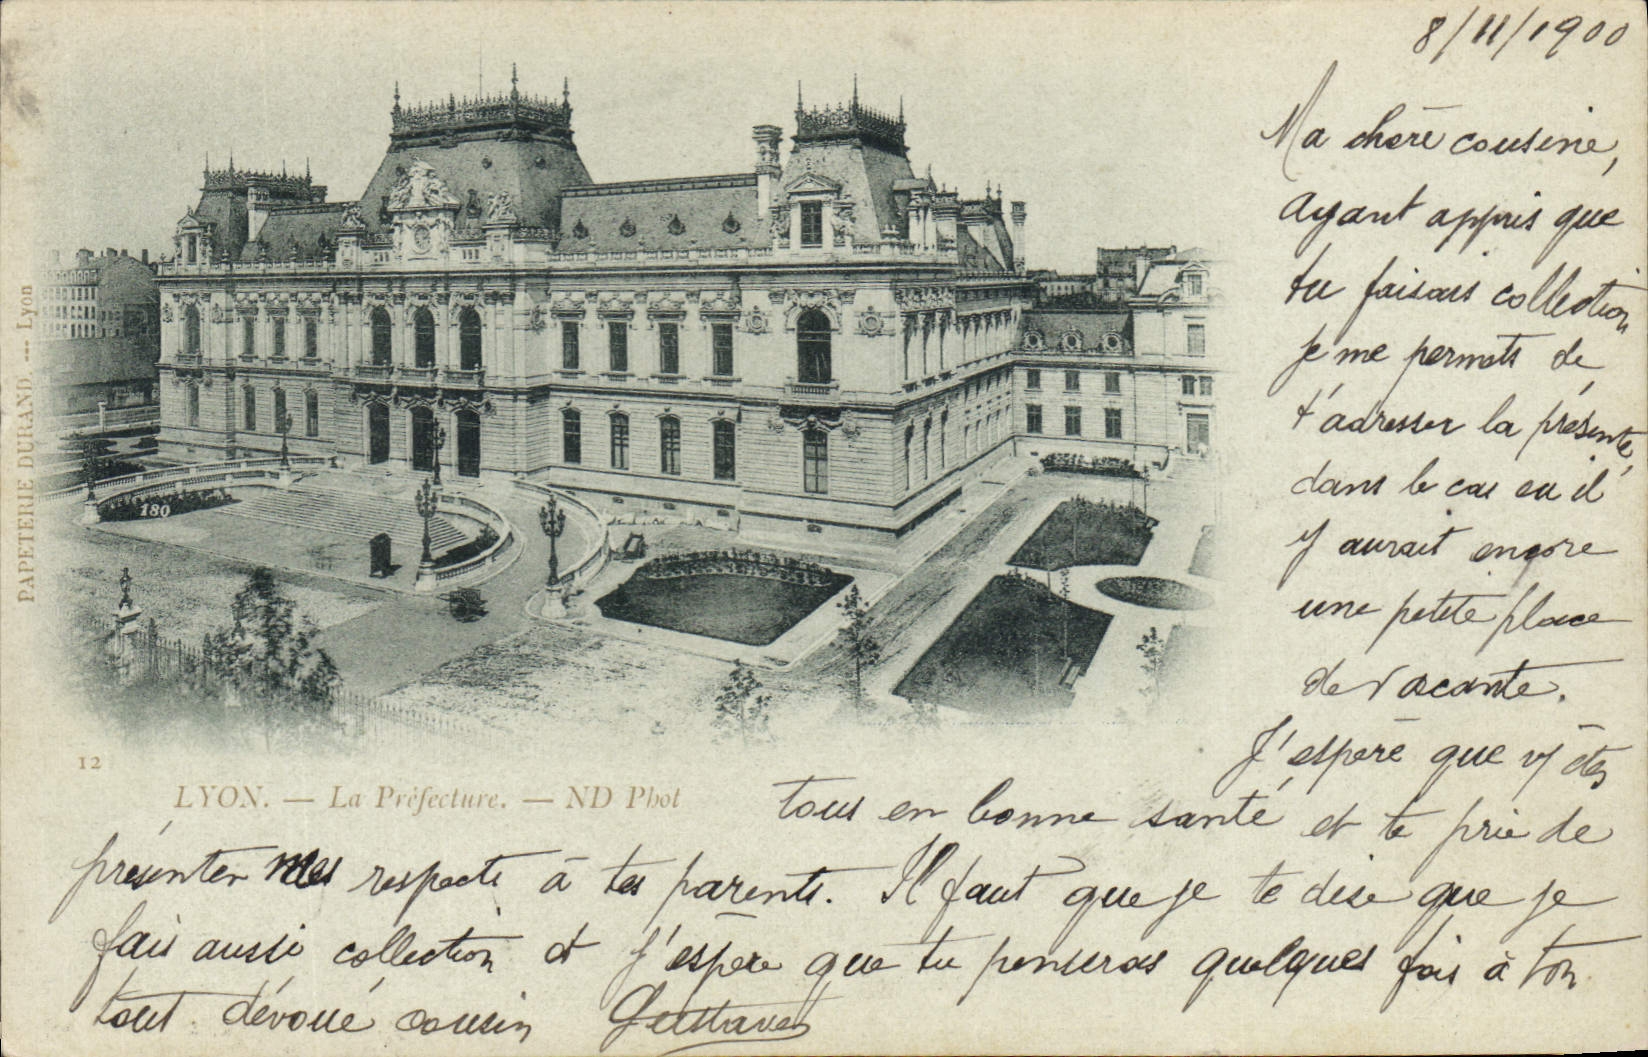 8/11/1900
Ma chère cousine,
Ayant appris que
tu faisais collection
je me permets de
t'adresser la présente,
dans le cas ou il
y aurait encore
une petite place
de vacante.
J'espère que vs êtes
tous en bonne santé et te prie de
présenter mes respects à tes parents. Il faut que je te dise que je
fais aussi collection et j'espère que tu penseras quelques fois à ton
tout dévoué cousin Gustave
PAPETERIE DURAND. --- Lyon
180
12
LYON. — La Préfecture. — ND Phot